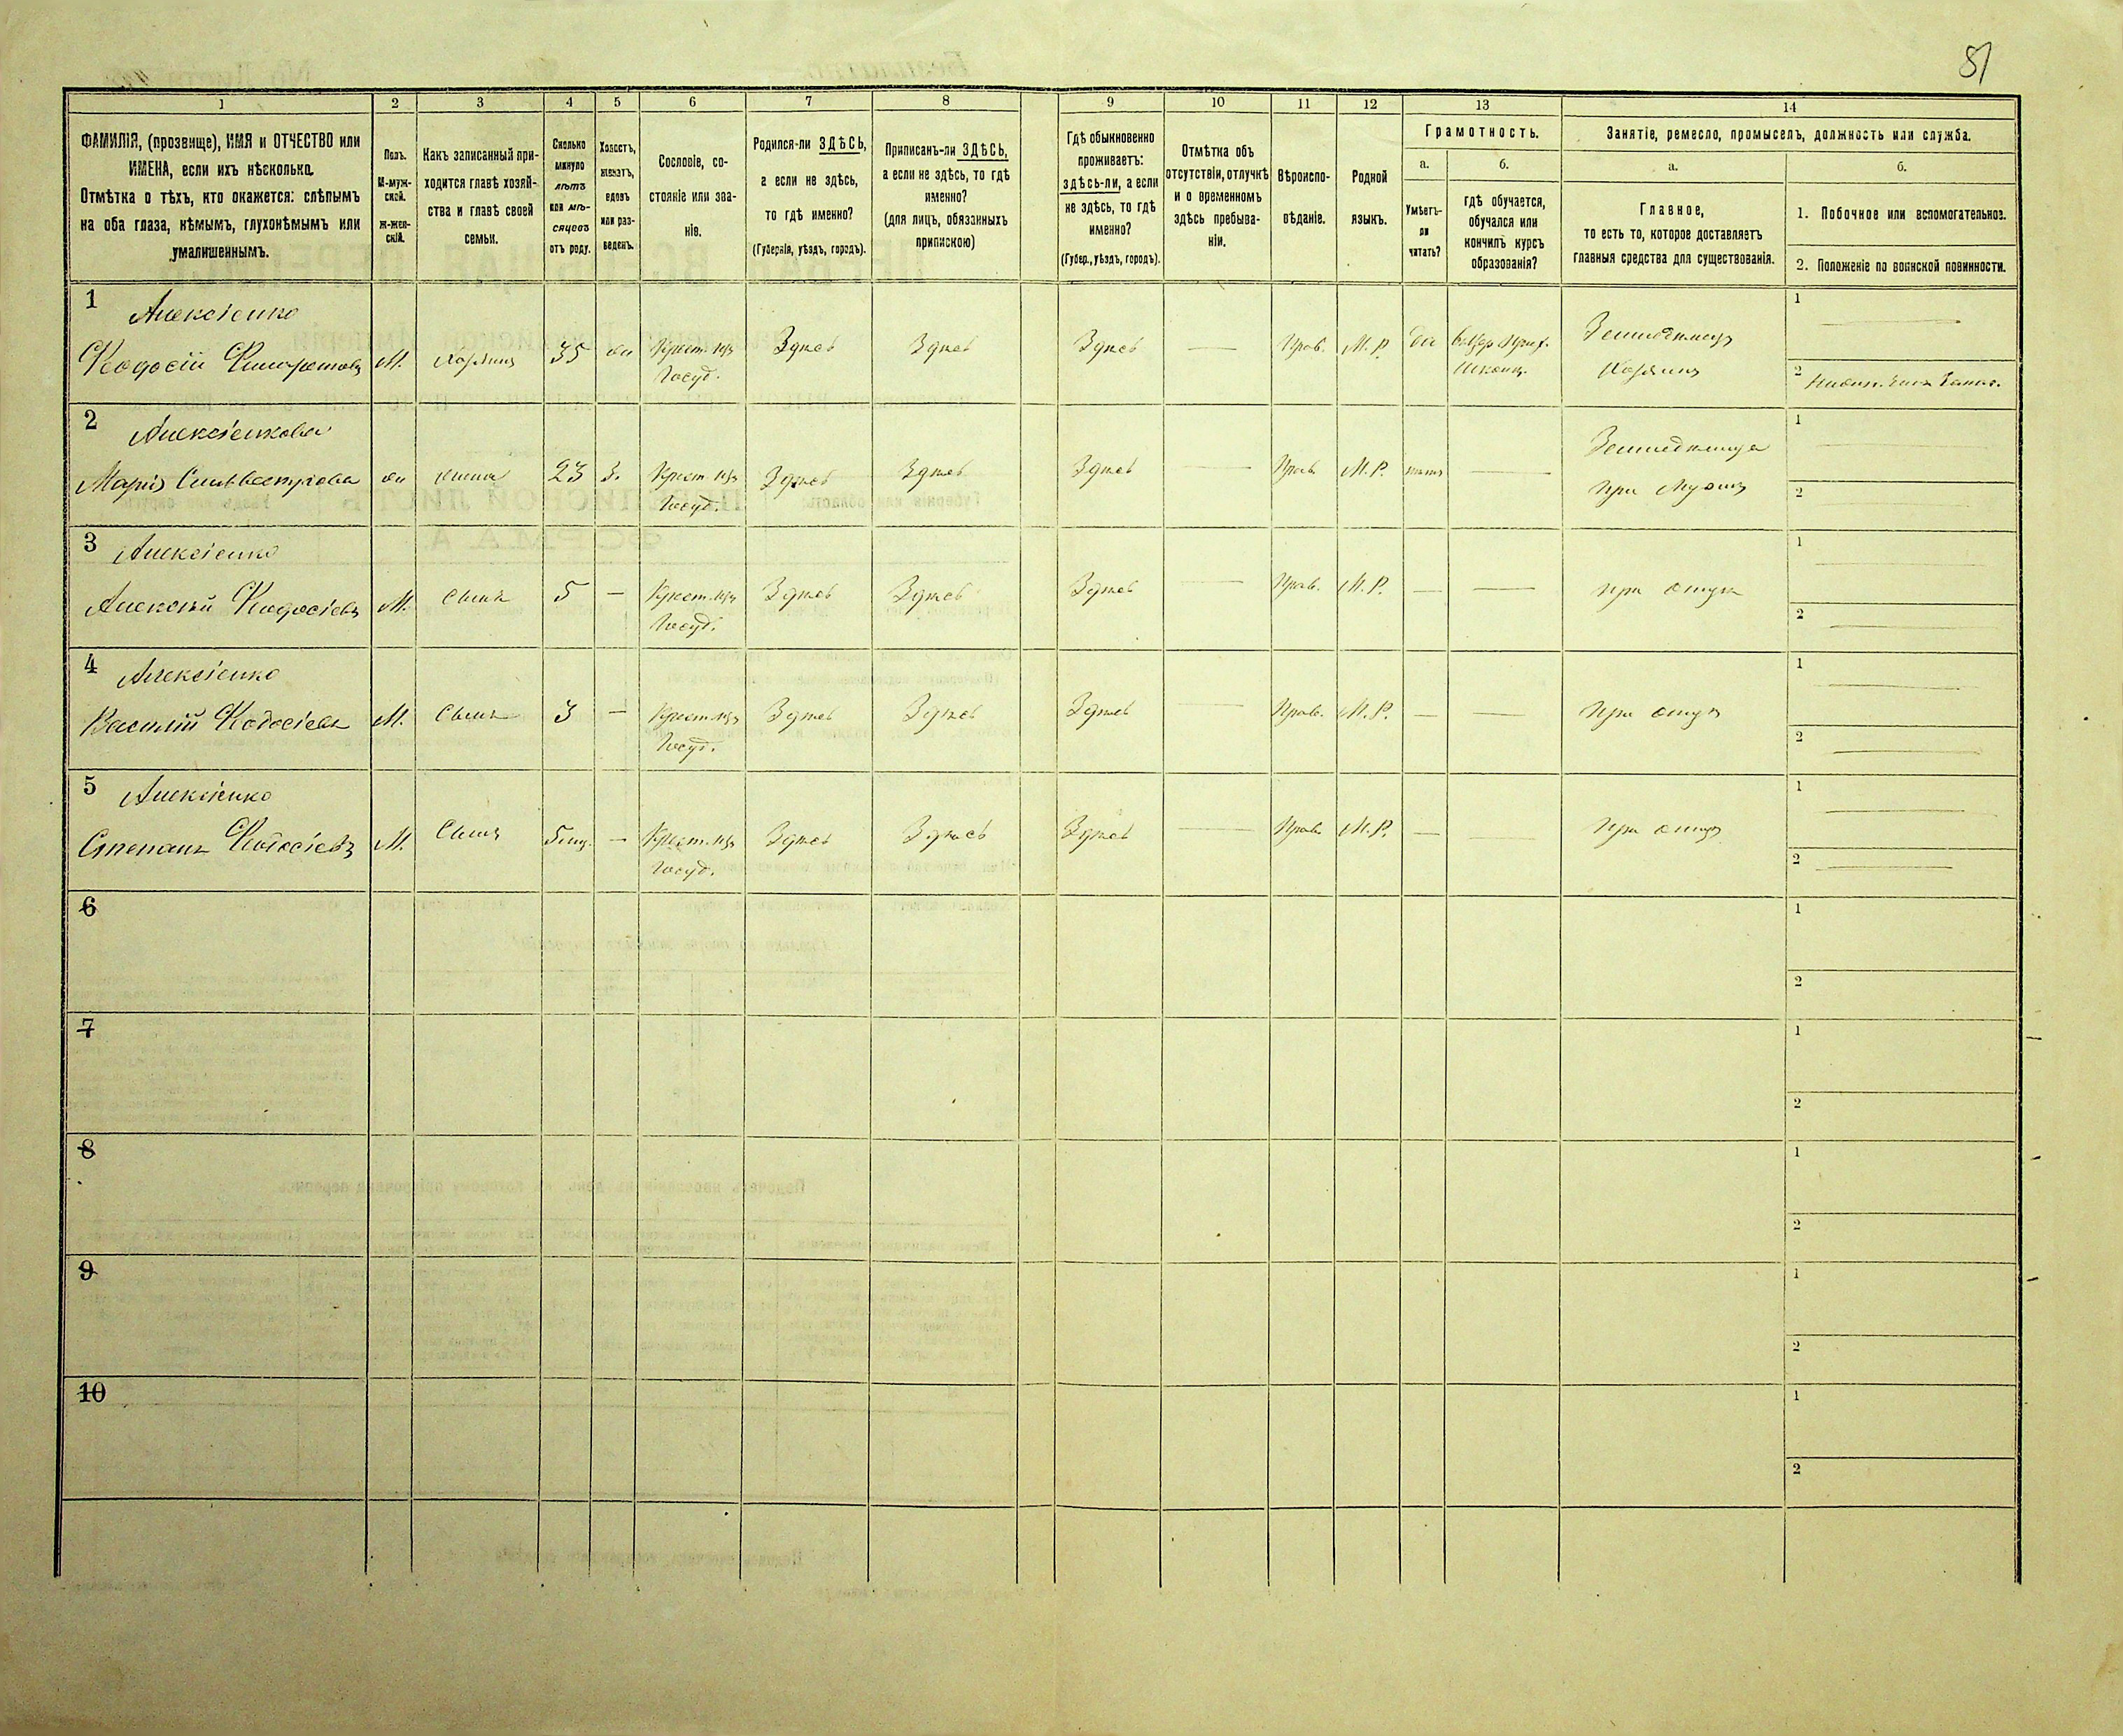 81
1 2 3 4 5 6 7 8 9 10 11 12 13 14
ФАМИЛІЯ, (прозвище), ИМЯ и ОТЧЕСТВО или
ИМЕНА, если ихъ нѣсколько.
Отмѣтка о тѣхъ, кто окажется: слѣпымъ
на оба глаза, нѣмымъ, глухонѣмымъ или
умалишеннымъ.
Полъ.
М-муж-
ской.
Ж-жен-
скій.
Какъ записанный при-
ходится главѣ хозяй-
ства и главѣ своей
семьи.
Сколько
минуло
лѣтъ
или мѣ-
сяцевъ
отъ роду.
Холостъ,
женатъ,
вдовъ
или раз-
веденъ.
Сословіе, со-
стояніе или зва-
ніе.
Родился-ли ЗДѢСЬ,
а если не здѣсь,
то гдѣ именно?
(Губернія, уѣздъ, городъ).
Приписанъ-ли ЗДѢСЬ,
а если не здѣсь, то гдѣ
именно?
(для лицъ, обязанныхъ
припискою)
Гдѣ обыкновенно
проживаетъ:
здѣсь-ли, а если
не здѣсь, то гдѣ
именно?
(Губер., уѣздъ, городъ).
Отмѣтка объ
отсутствіи, отлучкѣ
и о временномъ
здѣсь пребыва-
ніи.
Вѣроиспо-
вѣданіе.
Родной
языкъ.
Грамотность.
а.
Умѣетъ-
ли
читать?
б.
гдѣ обучается,
обучался или
кончилъ курсъ
образованія?
Занятіе, ремесло, промыселъ, должность или служба.
а.
Главное,
то есть то, которое доставляетъ
главныя средства для существованія.
б.
1. Побочное или вспомогательное.
2. Положеніе по воинской повинности.
1 Алексіенко
Ѳеодосій Филаретовъ М. хозяинъ 35 ж Крест. изъ Здѣсь Здѣсь Здѣсь — Прав. М. Р. да
Госуд.
Земледѣлецъ
Хозяинъ
1 —
2
2 Алексіенкова
Марія Сильвестрова ж жена 23 З. Крест. изъ Здѣсь Здѣсь Здѣсь — Прав. М. Р. нѣтъ —
Госуд.
Земледѣлица
При Мужѣ
1 —
2 —
3 Алексіенко
Алексѣй Ѳеодосіевъ М. Сынъ 5 — Крест. изъ Здѣсь Здѣсь Здѣсь — Прав. М. Р. — — При отцѣ
Госуд.
1 —
2 —
4 Алексіенко
Василій Ѳеодосіевъ М. Сынъ 3 — Крест. изъ Здѣсь Здѣсь Здѣсь — Прав. М. Р. — — При отцѣ
Госуд.
1 —
2 —
5 Алексіенко
Степанъ Ѳеодосіевъ М. Сынъ 5 мц. — Крест. изъ Здѣсь Здѣсь Здѣсь — Прав. М. Р. — — При отцѣ
Госуд.
1 —
2 —
6
1
2
7
1
2
8
1
2
9
1
2
10
1
2